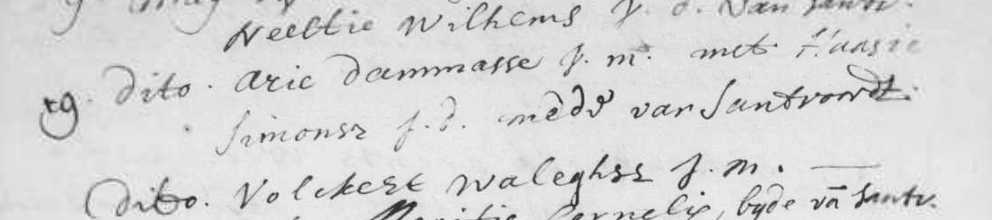 Neeltie Wilhems J. d. van Santv.
19. dito. Arie Dammasse J. m. met Haasie
Simonsz J. d. mede van Santvoordt.
dito. Volckert Waleghsz J. m. —
Cornelis, byde vā Santv.